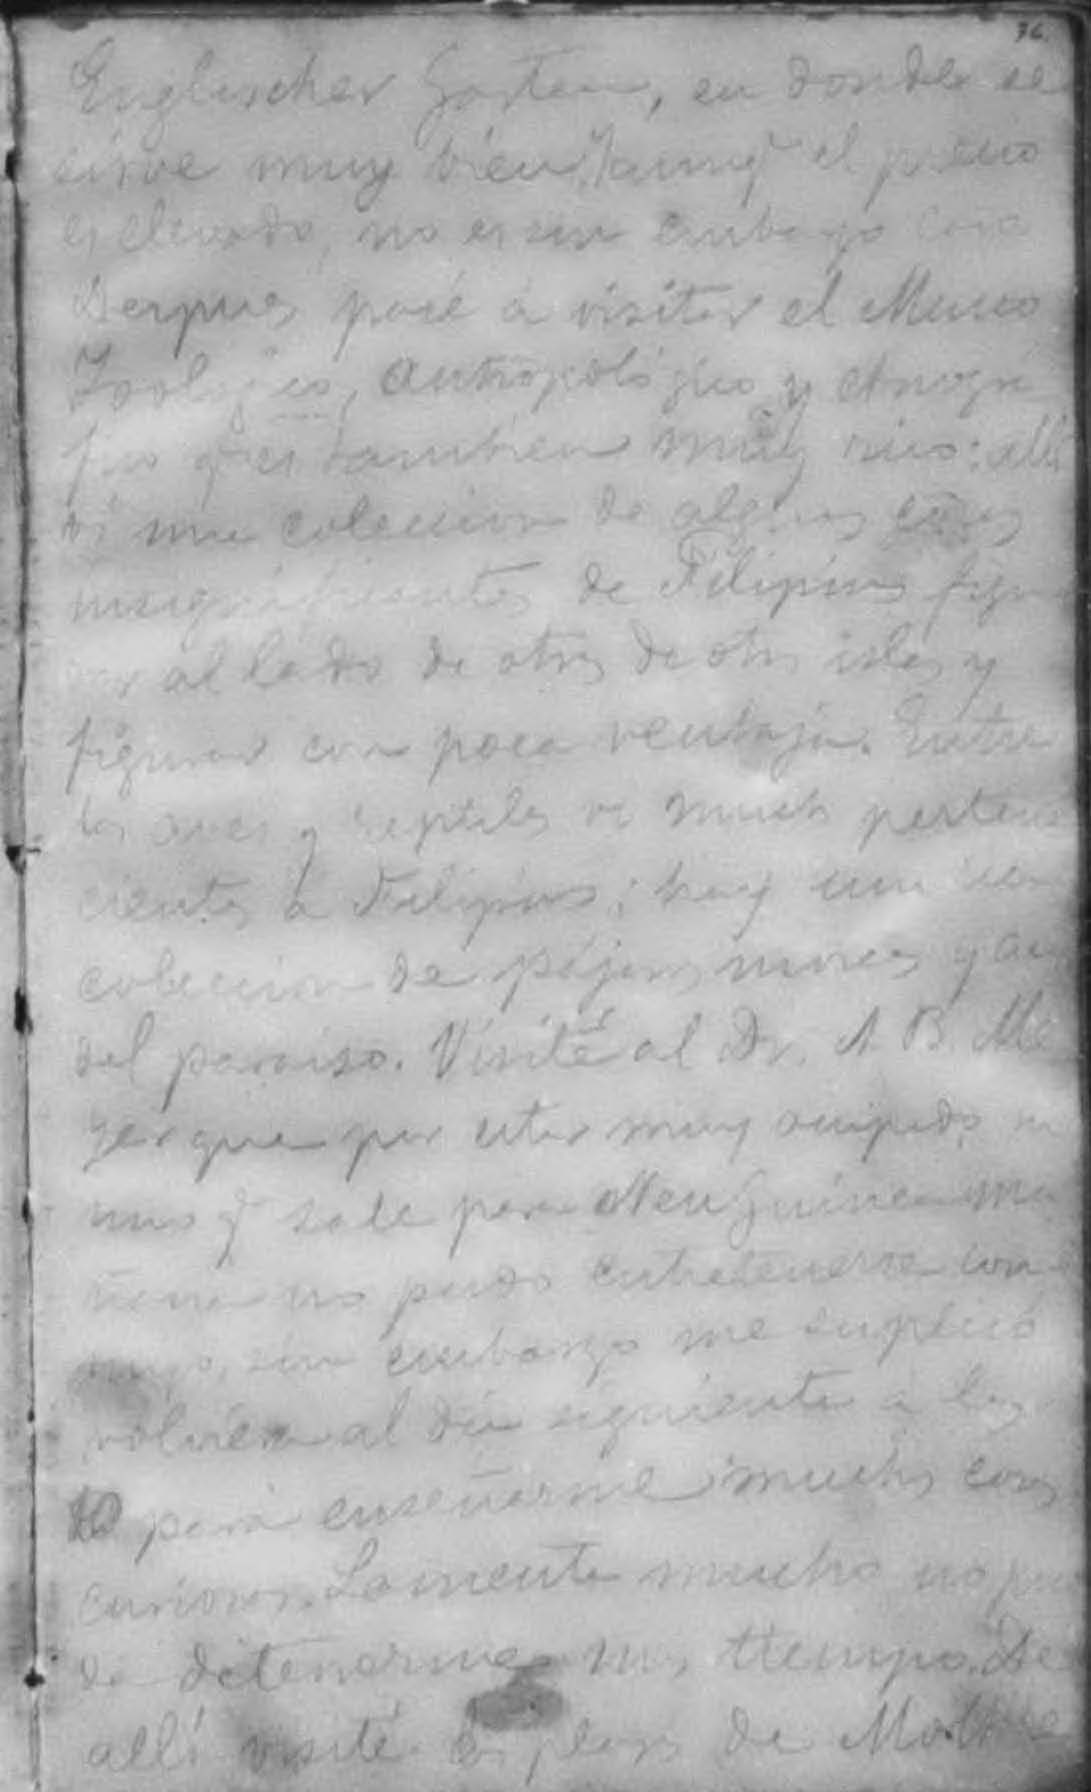 36.
Englischer Garten, en donde se
sirve muy bien, y aunq el precio
es elevado, no es sin embargo caro
Despues pasé á visitar el Museo
Zoologico, antropológico y etnográ
fico q es tambien muy rico: allí
vi una coleccion de algunas cosas
insignificantes de Filipinas figu
rar al lado de otras de otras islas y
figurar con poca ventaja. Entre
las aves y reptiles vi muchos pertene
cientes á Filipinas; hay una rica
coleccion de pájaros moscas y aves
del paraiso. Visité al Dr. A B. Me
yer que por estar muy ocupado
mas q sale para Neu Guinea ma
ñana no pudo entretenerse con
migo, sin embargo me suplicó
volviera al dia siguiente á las
10 para enseñarme muchas cosas
curiosas. Lamente mucho no pue
da detenerme mas tiempo. De
allí visité las plazas de